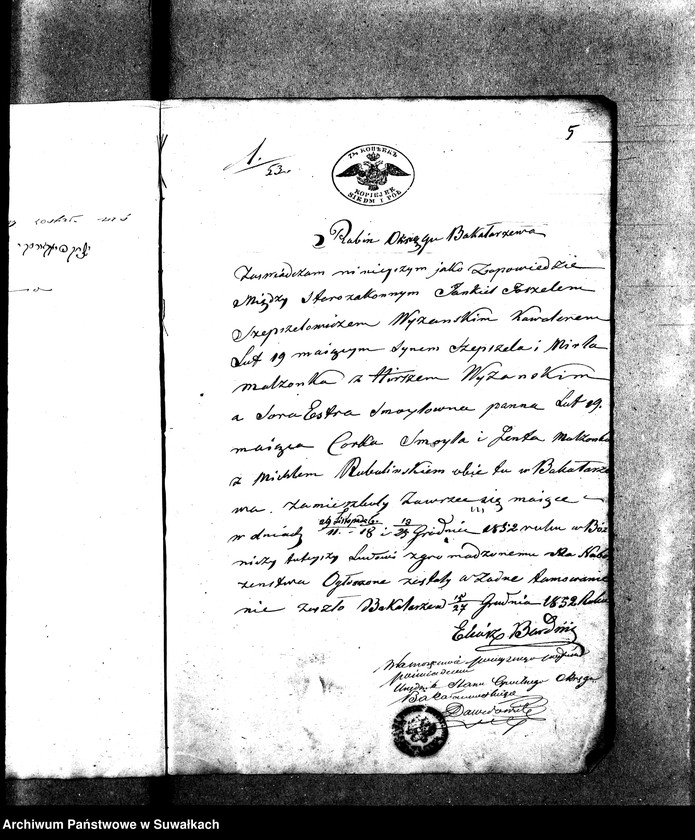 5
1.
53.
7½ КОПѢЕКЪ
KOPIEJEK
SIEDM I PÓŁ
Rabin Okręgu Bakałarzewa
Zaswiadczam niniejszym jako Zapowiedzie
Między Starozakonnym Jankiel Joszelem
Szepszelowiczem Wyzanskim Kawalerem
Lat 19 maiącym Synem Szepszela i Mirla
malżonka z Hirszem Wyzanskim
a Sora Estra Smoylowna panna Lat 19.
maiąca Corka Smoyla i Zenta Malzonka
z Michlem Rubulinskiem obie tu w Bakałarze
wa. Zamieszkały Zawrzec się maiące
w dniach 29 Listopada 11. 18 i 13/25 Grudnia 1852 roku w Boż
niczy tuteyszy Ludowi zgromadzonemu na Nabo
zenstwa Ogłoszone zostały a Zadne tamowanie
nie zaszło Bakałarzew 15/27 Grudnia 1852 Roku
Własnoręczność
poświadczam
Urzędnik Stanu Cywilnego Okręgu
Bakałarzewskiego
Archiwum Państwowe w Suwałkach